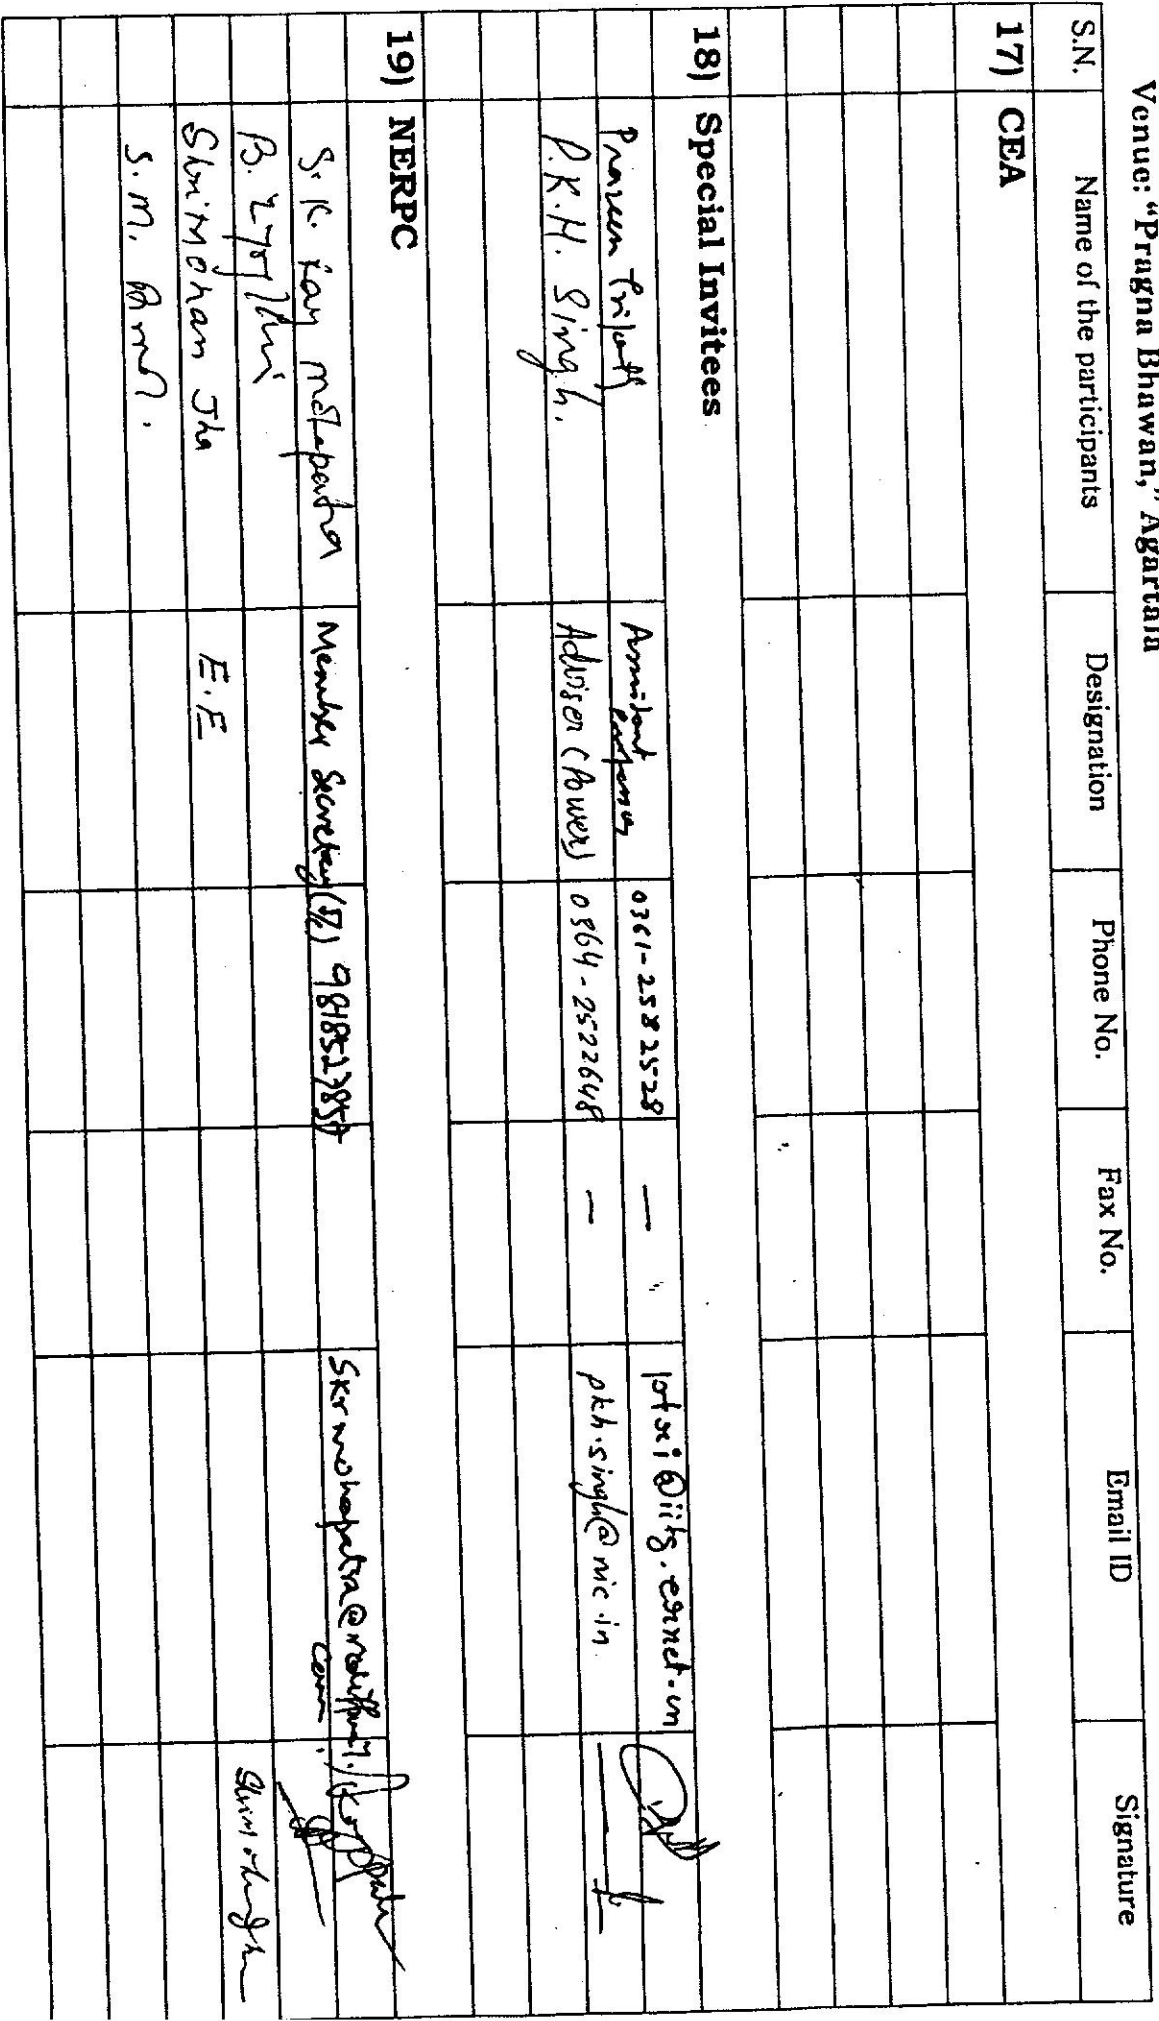 Venue: “Pragna Bhawan,” Agartala
S.N. Name of the participants Designation Phone No. Fax No. Email ID Signature
17) CEA
18) Special Invitees
Praveen Tripathy Assistant 0361-2582528 —
P.K.H. Singh. Adviser (Power) 0364-2522648 — pkh.singh@nic.in
19) NERPC
S. K. Ray Mohapatra Member Secretary (I/c) skrmohapatra@rediffmail.
com
B.
Shri Mohan Jha E.E
S. M.